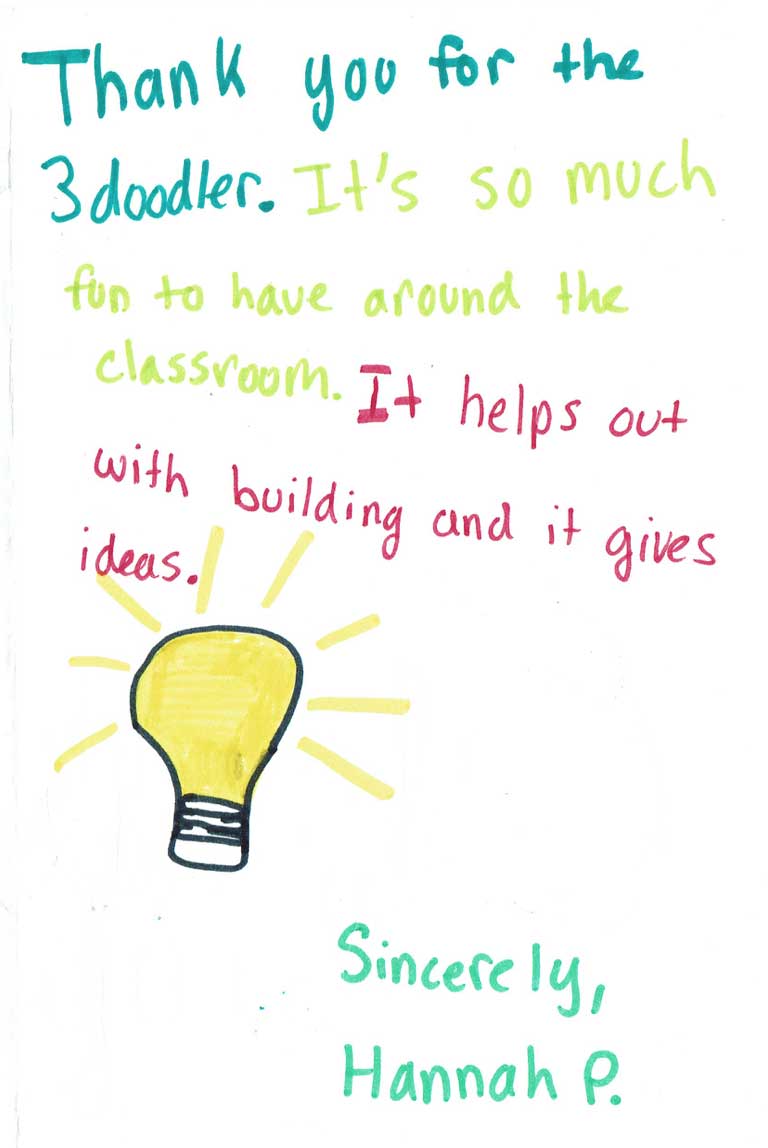 Thank you for the
3doodler. It's so much
fun to have around the
classroom. It helps out
with building and it gives
ideas.
Sincerely,
Hannah P.